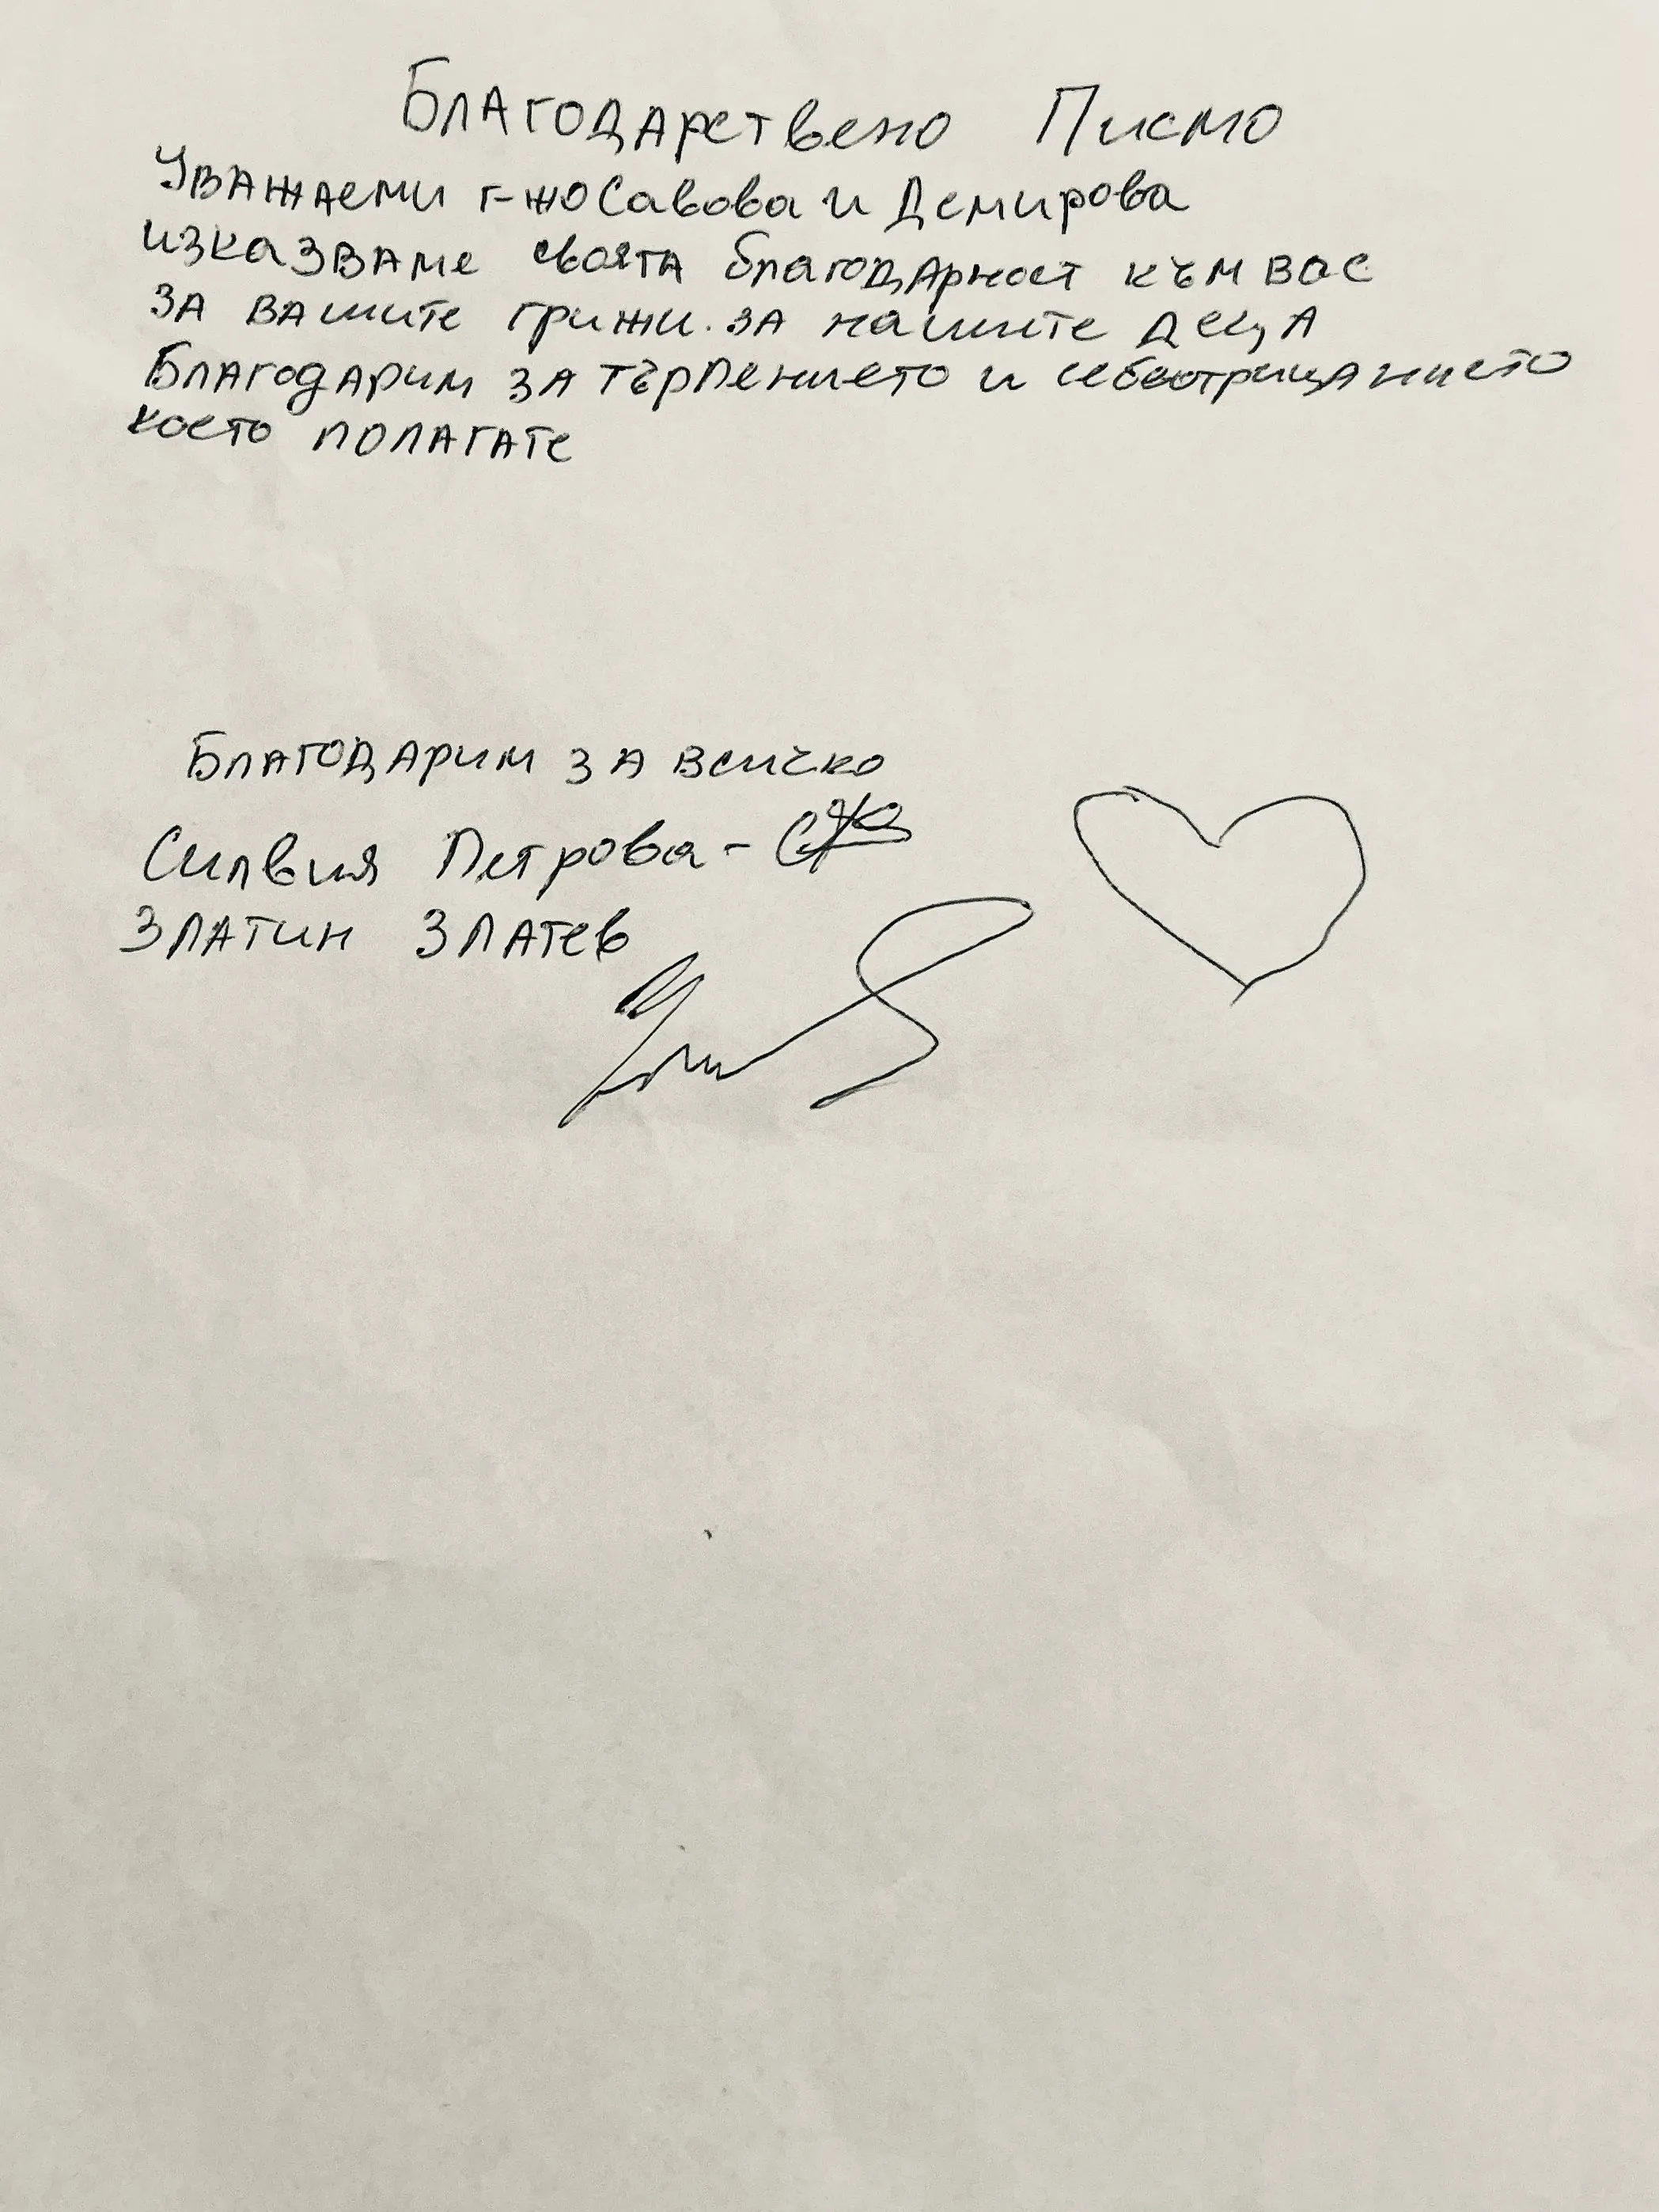 Благодарствено Писмо
Уважаеми г-жо Савова и Демирова
изказваме своята благодарност към вас
за вашите грижи. за нашите деца
Благодарим за търпението и себеотрицанието
което полагате
Благодарим за всичко
Силвия Петрова -
Златин Златев